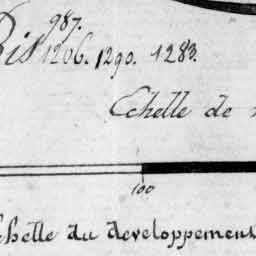 987.
Bis 1206. 1290. 1283.
Echelle de
100
Echelle du developpement